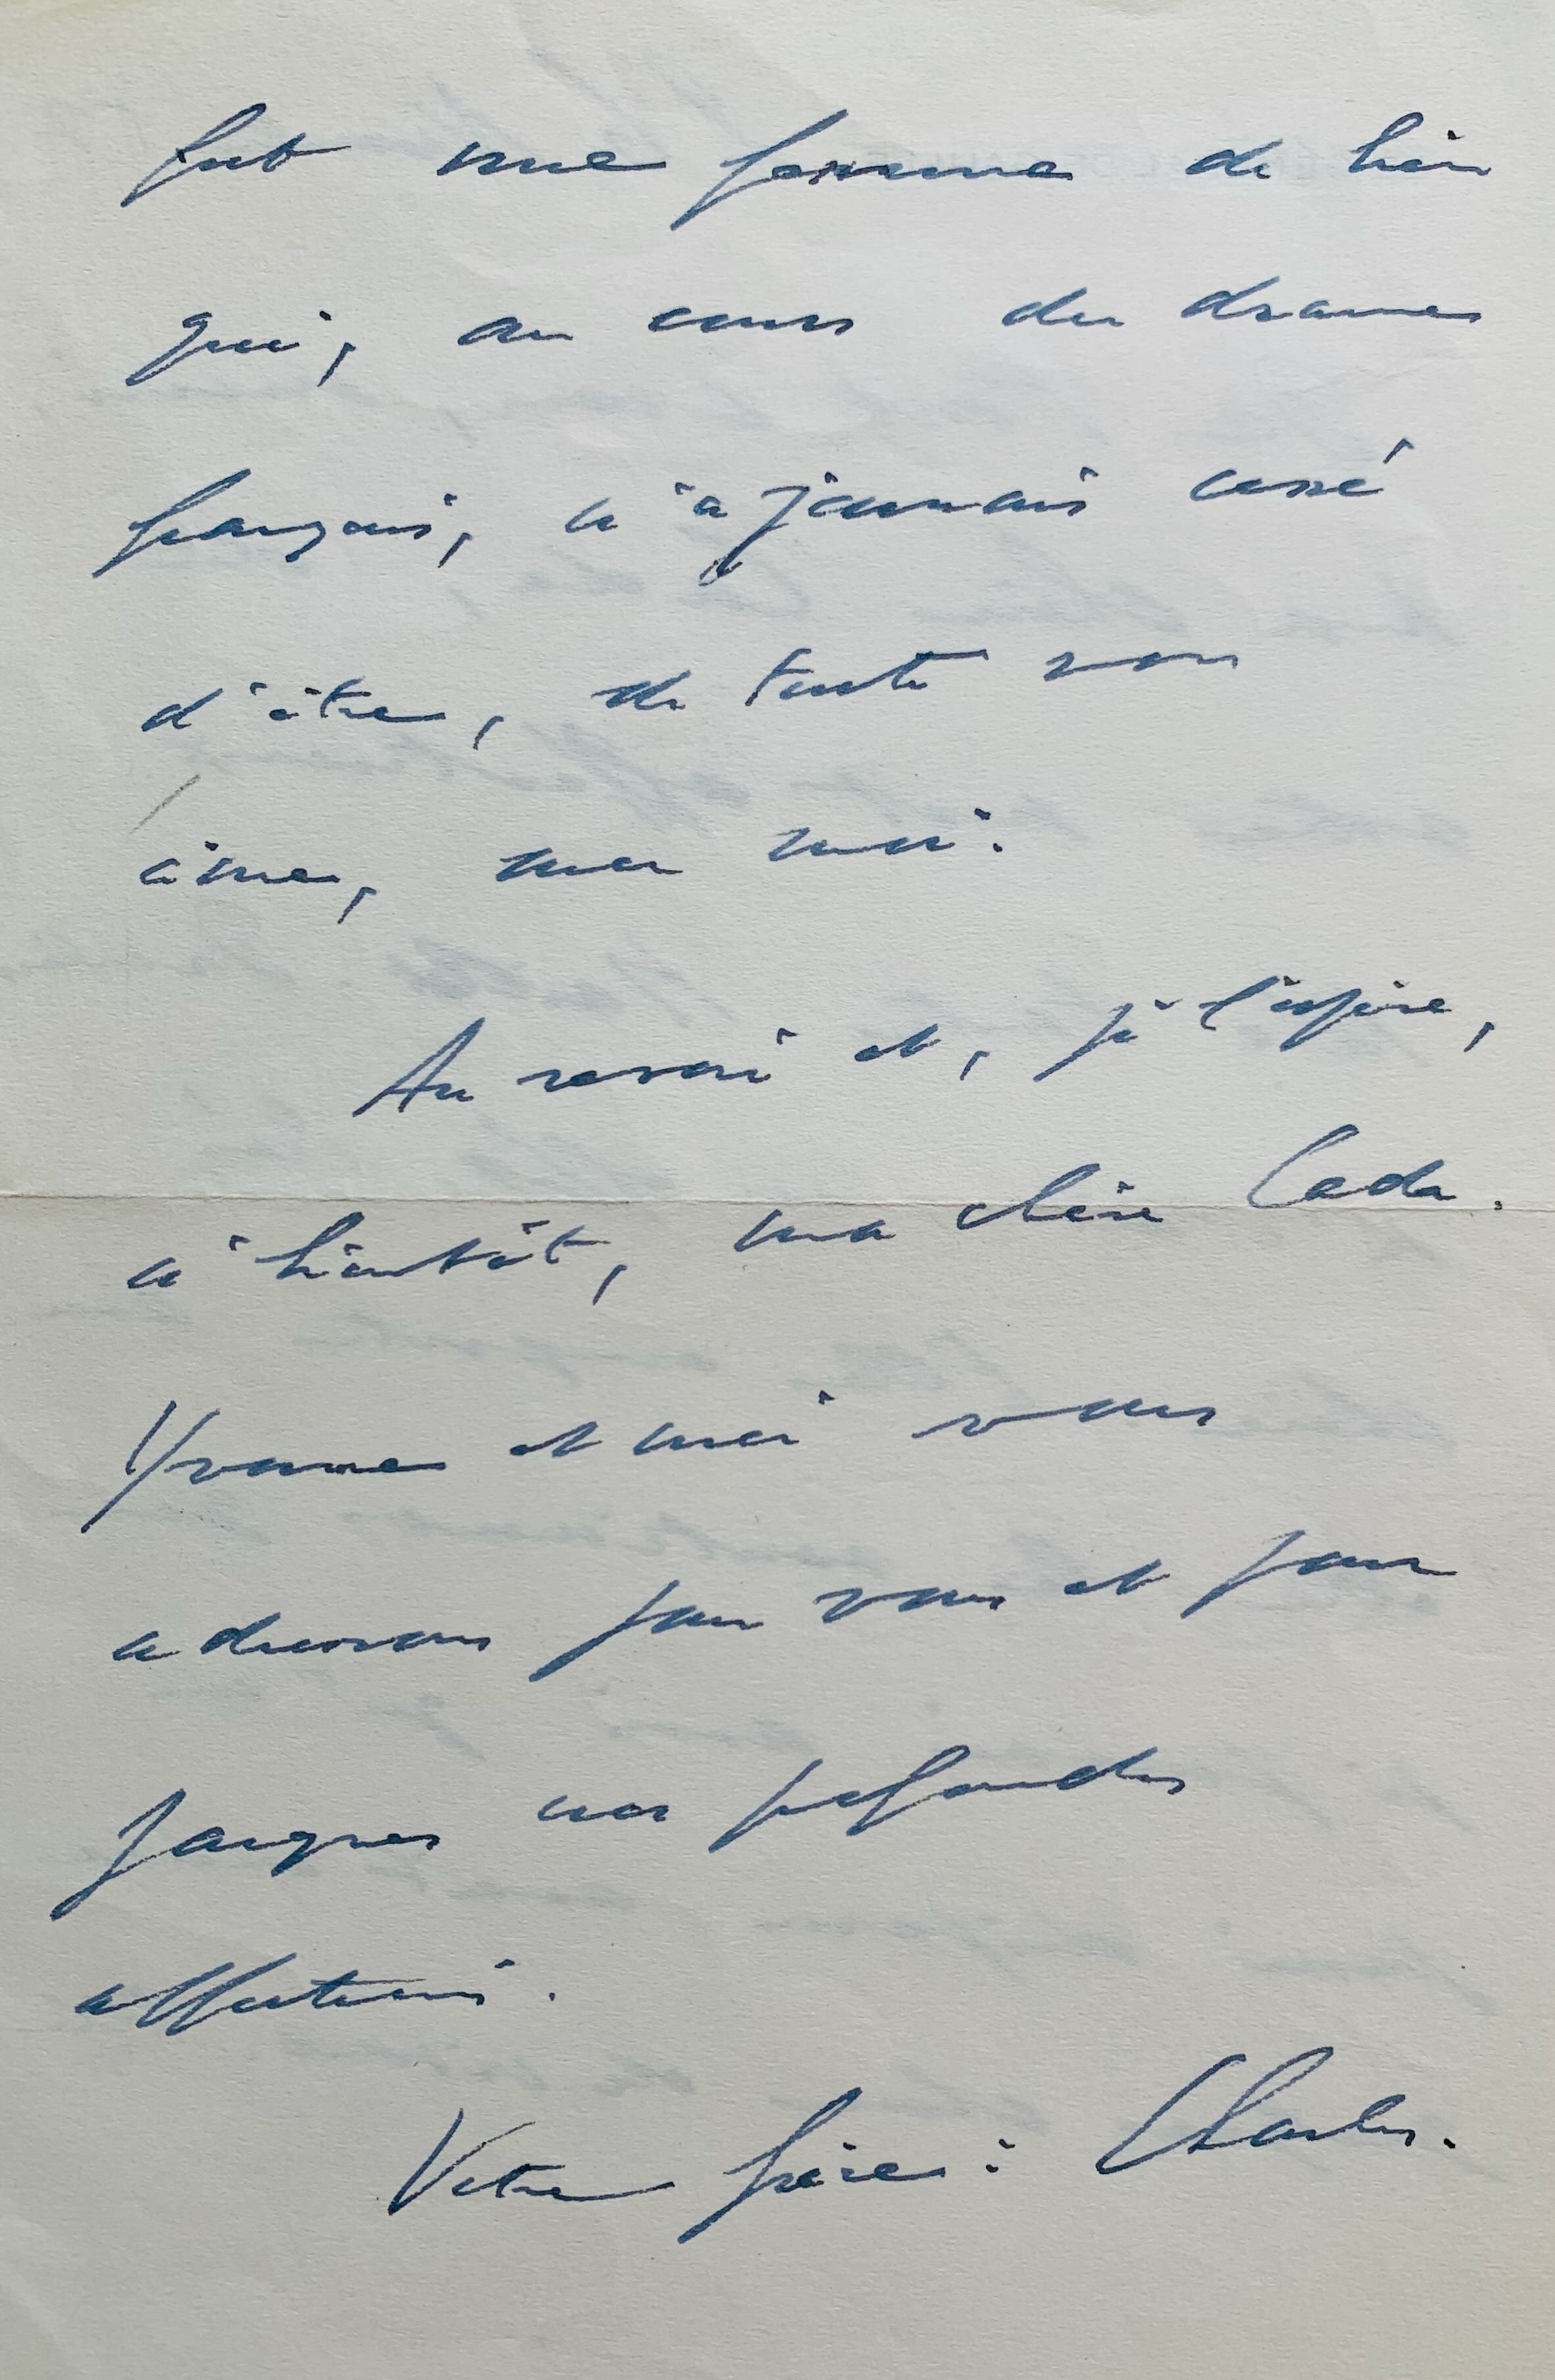 fut une femme de bien
qui, au cours du drame
français, n'a jamais cessé
d'être, de toute son
âme, avec moi.
Au revoir et, je l'espère,
à bientôt, ma chère Cada.
Yvonne et moi vous
adressons pour vous et pour
Jacques nos profondes
affections.
Votre frère : Charles.